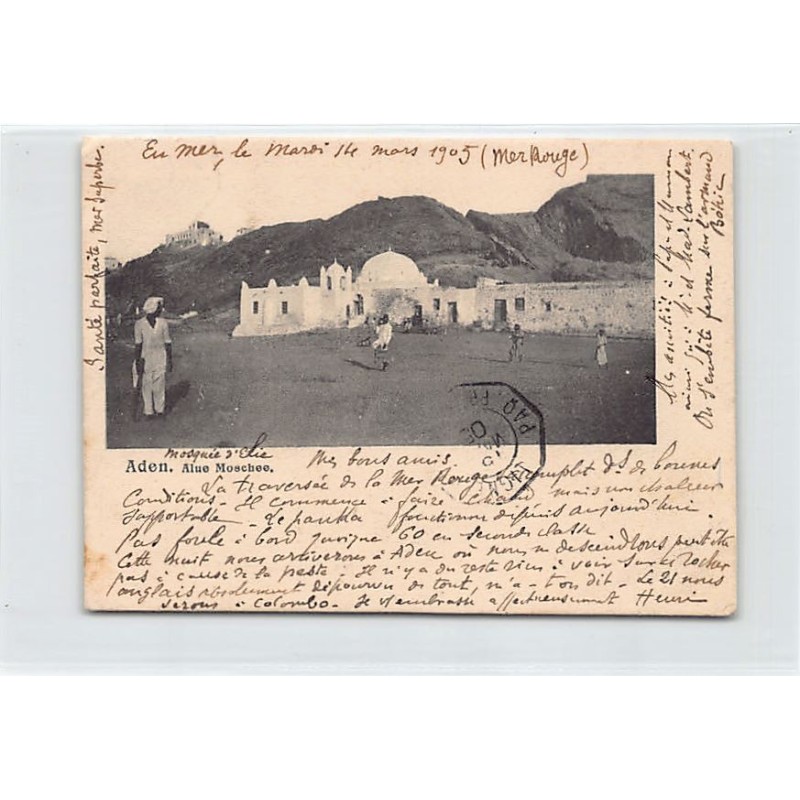 En mer, le Mardi 14 mars 1905 (Mer Rouge)
Santé parfaite, mer superbe.
Mes amitiés à Papa et Maman
ainsi qu'à M. et Mad. Lambert.
On s'embête ferme sur l'armand
Béhic
PAQ. FR.
Mosquée d'
Aden. Alue Moschee.
Mes bons amis
La traversée de la Mer Rouge s'accomplit ds de bonnes
Conditions - Il commence à faire chaud mais non chaleur
supportable - Le panka fonctionne depuis aujourd'hui.
Pas foule à bord puisque 60 en seconde classe
Cette nuit nous arriverons à Aden où nous ne descendrons peut être
pas à cause de la peste - Il n'y a du reste rien à voir sur ce rocher
anglais absolument dépourvu de tout, m'a-t-on dit - Le 21 nous
serons à Colombo - Je t'embrasse affectueusement Henri